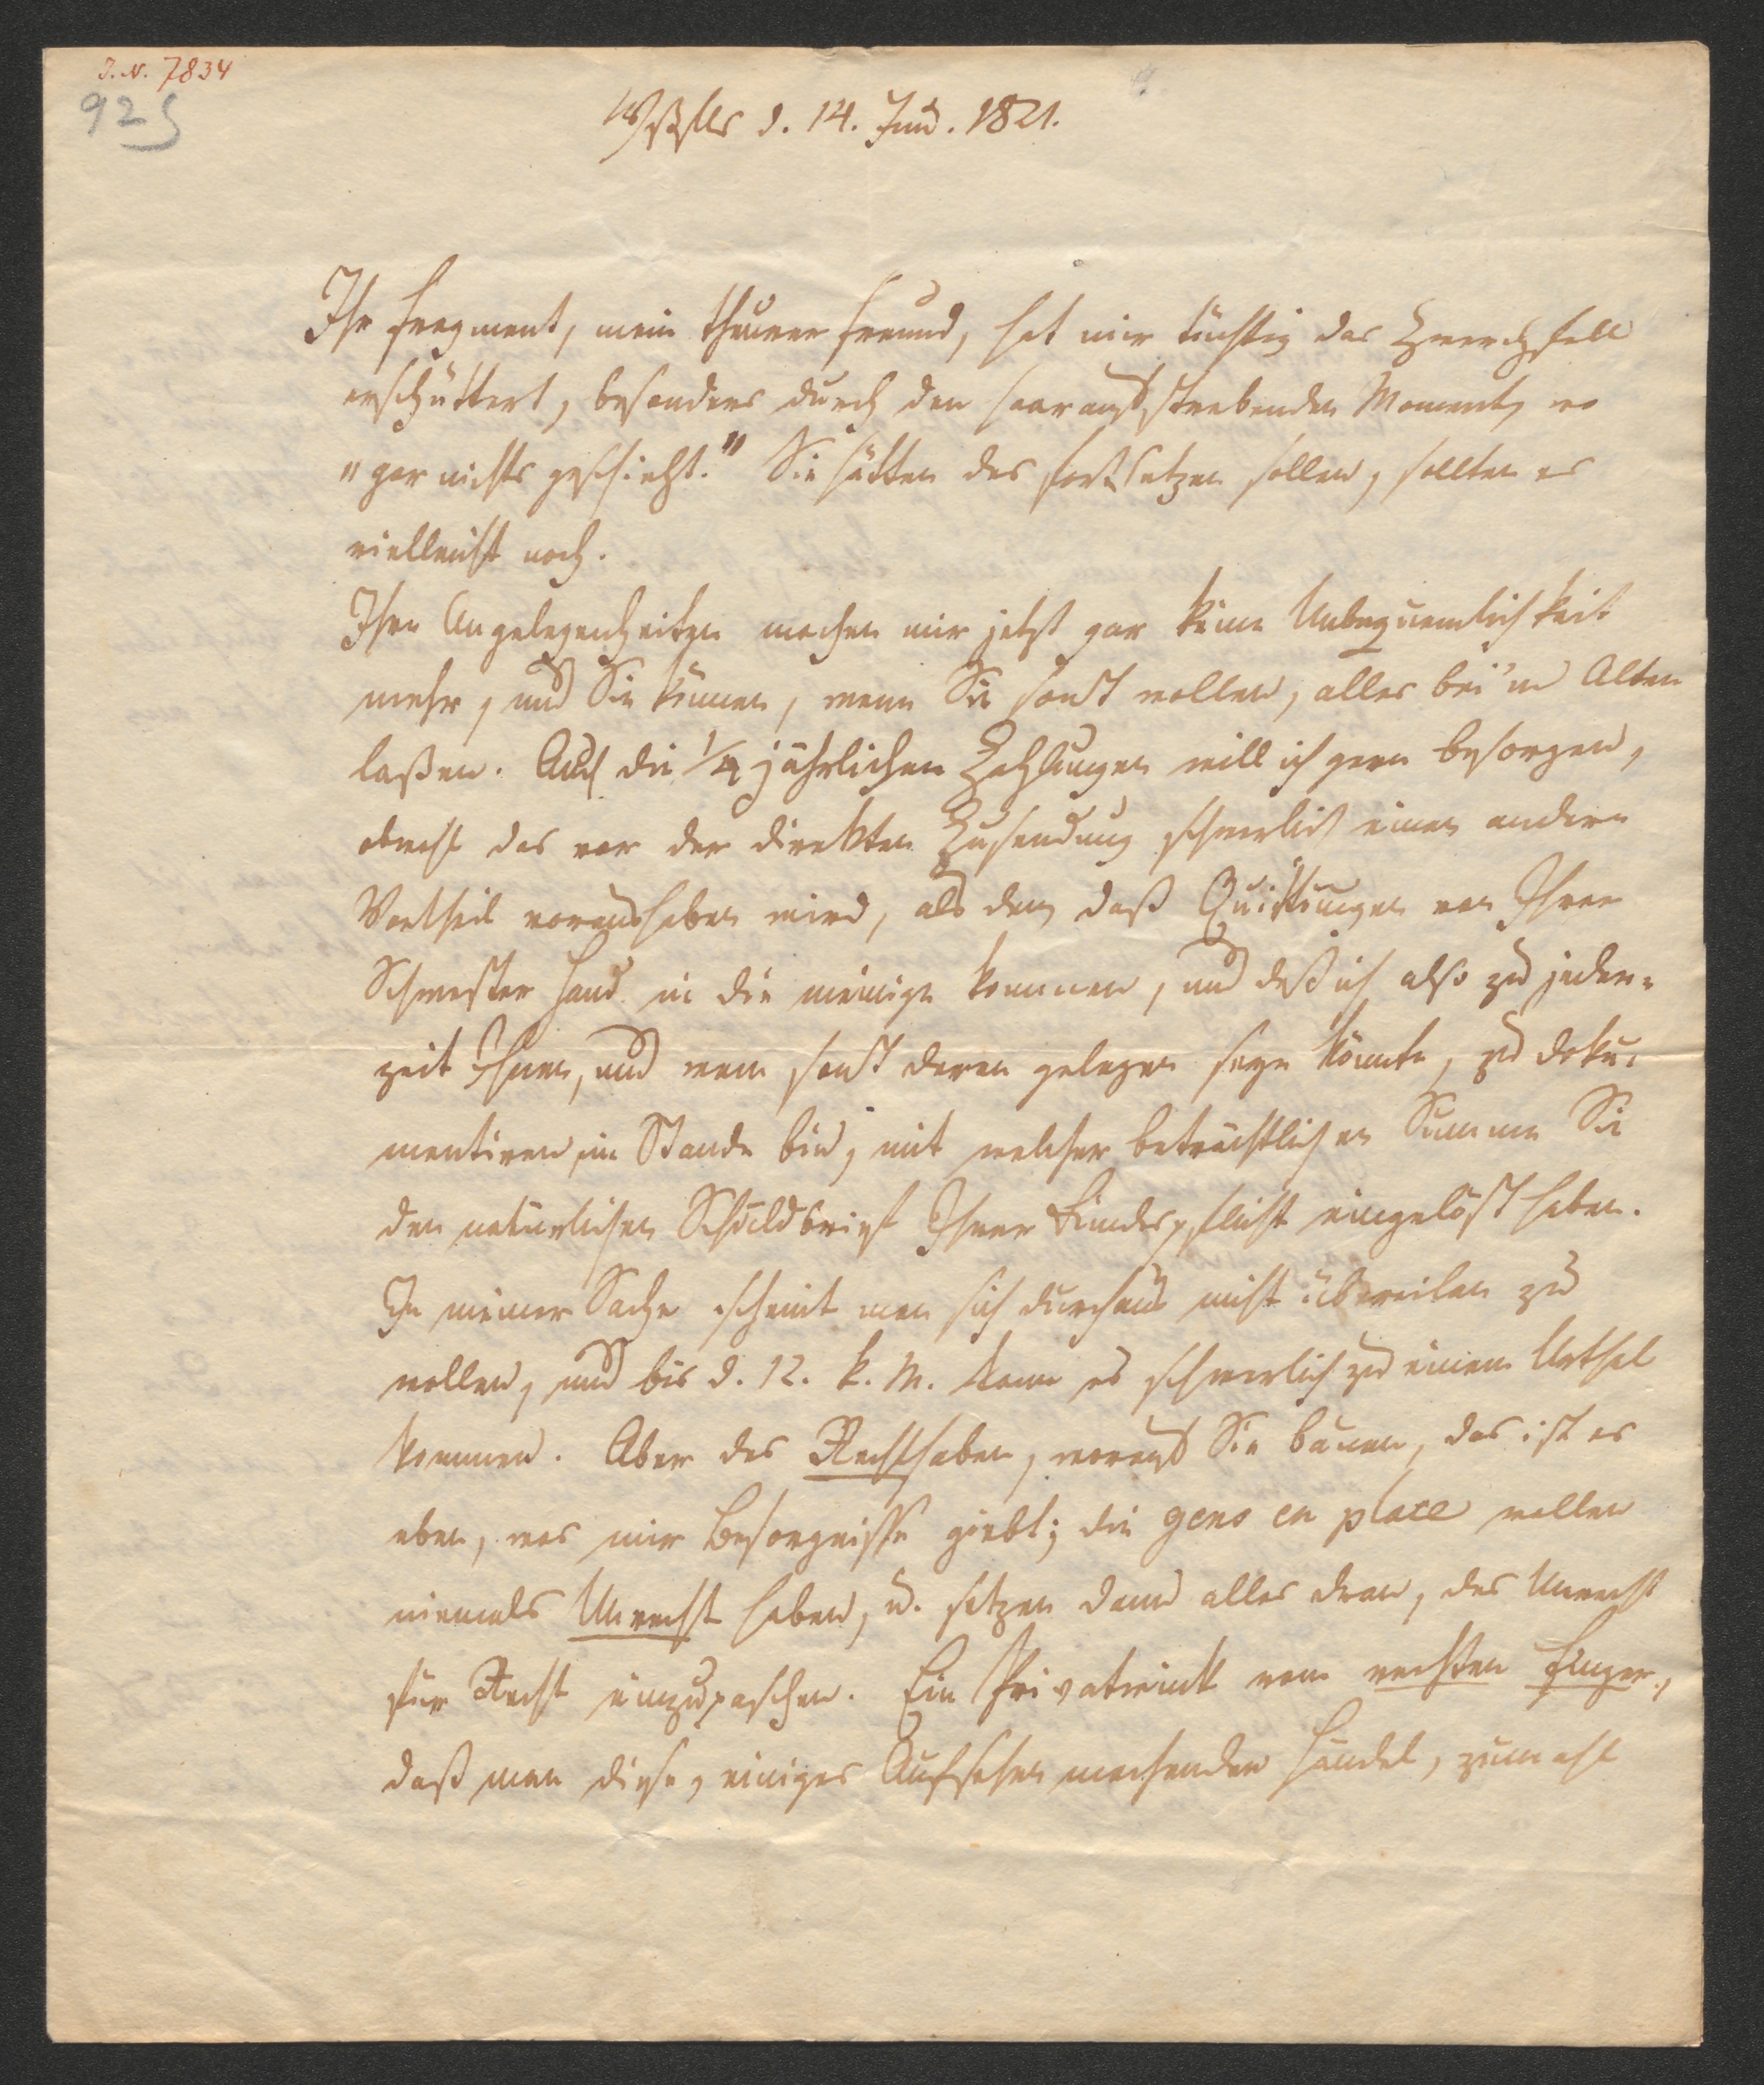 J. N. 7834
925
Wßfls d. 14. Jun. 1821.
Ihr Fragment, mein theurer Freund, hat mir tüchtig das Zwerchfell
erschüttert, besonders durch den haaraufsträubenden Moment, wo
"gar nichts geschieht." Sie hätten das fortsetzen sollen, sollten es
vielleicht noch.
Ihre Angelegenheiten machen mir jetzt gar keine Unbequemlichkeit
mehr, und Sie können, wenn Sie sonst wollen, alles bei'm Alten
laßen. Auch die 1/4 jährlichen Zahlungen will ich gern besorgen,
obwohl das vor der direkten Zusendung schwerlich einen andern
Vortheil voraushaben wird, als den, daß Quittungen von Ihrer
Schwester Hand in die meinige kommen, und daß ich also zu jeder-
zeit Ihnen, und wem sonst daran gelegen seyn könnte, zu doku-
mentiren im Stande bin, mit welcher beträchtlichen Summe Sie
den natürlichen Schuldbrief Ihrer Kindespflicht eingelöst haben.
In meiner Sache scheint man sich durchaus nicht übereilen zu
wollen, und bis d. 12. k. M. kann es schwerlich zu einem Urthel
kommen. Aber das Rechthaben, worauf Sie bauen, das ist es
eben, was mir Besorgnisse giebt; die gens en place wollen
niemals Unrecht haben, u. setzen dann alles dran, das Unrecht
für Recht einzupaschen. Ein Privatwink vom rechten Finger,
daß man diese, einiges Aufsehen machenden Händel, zumahl